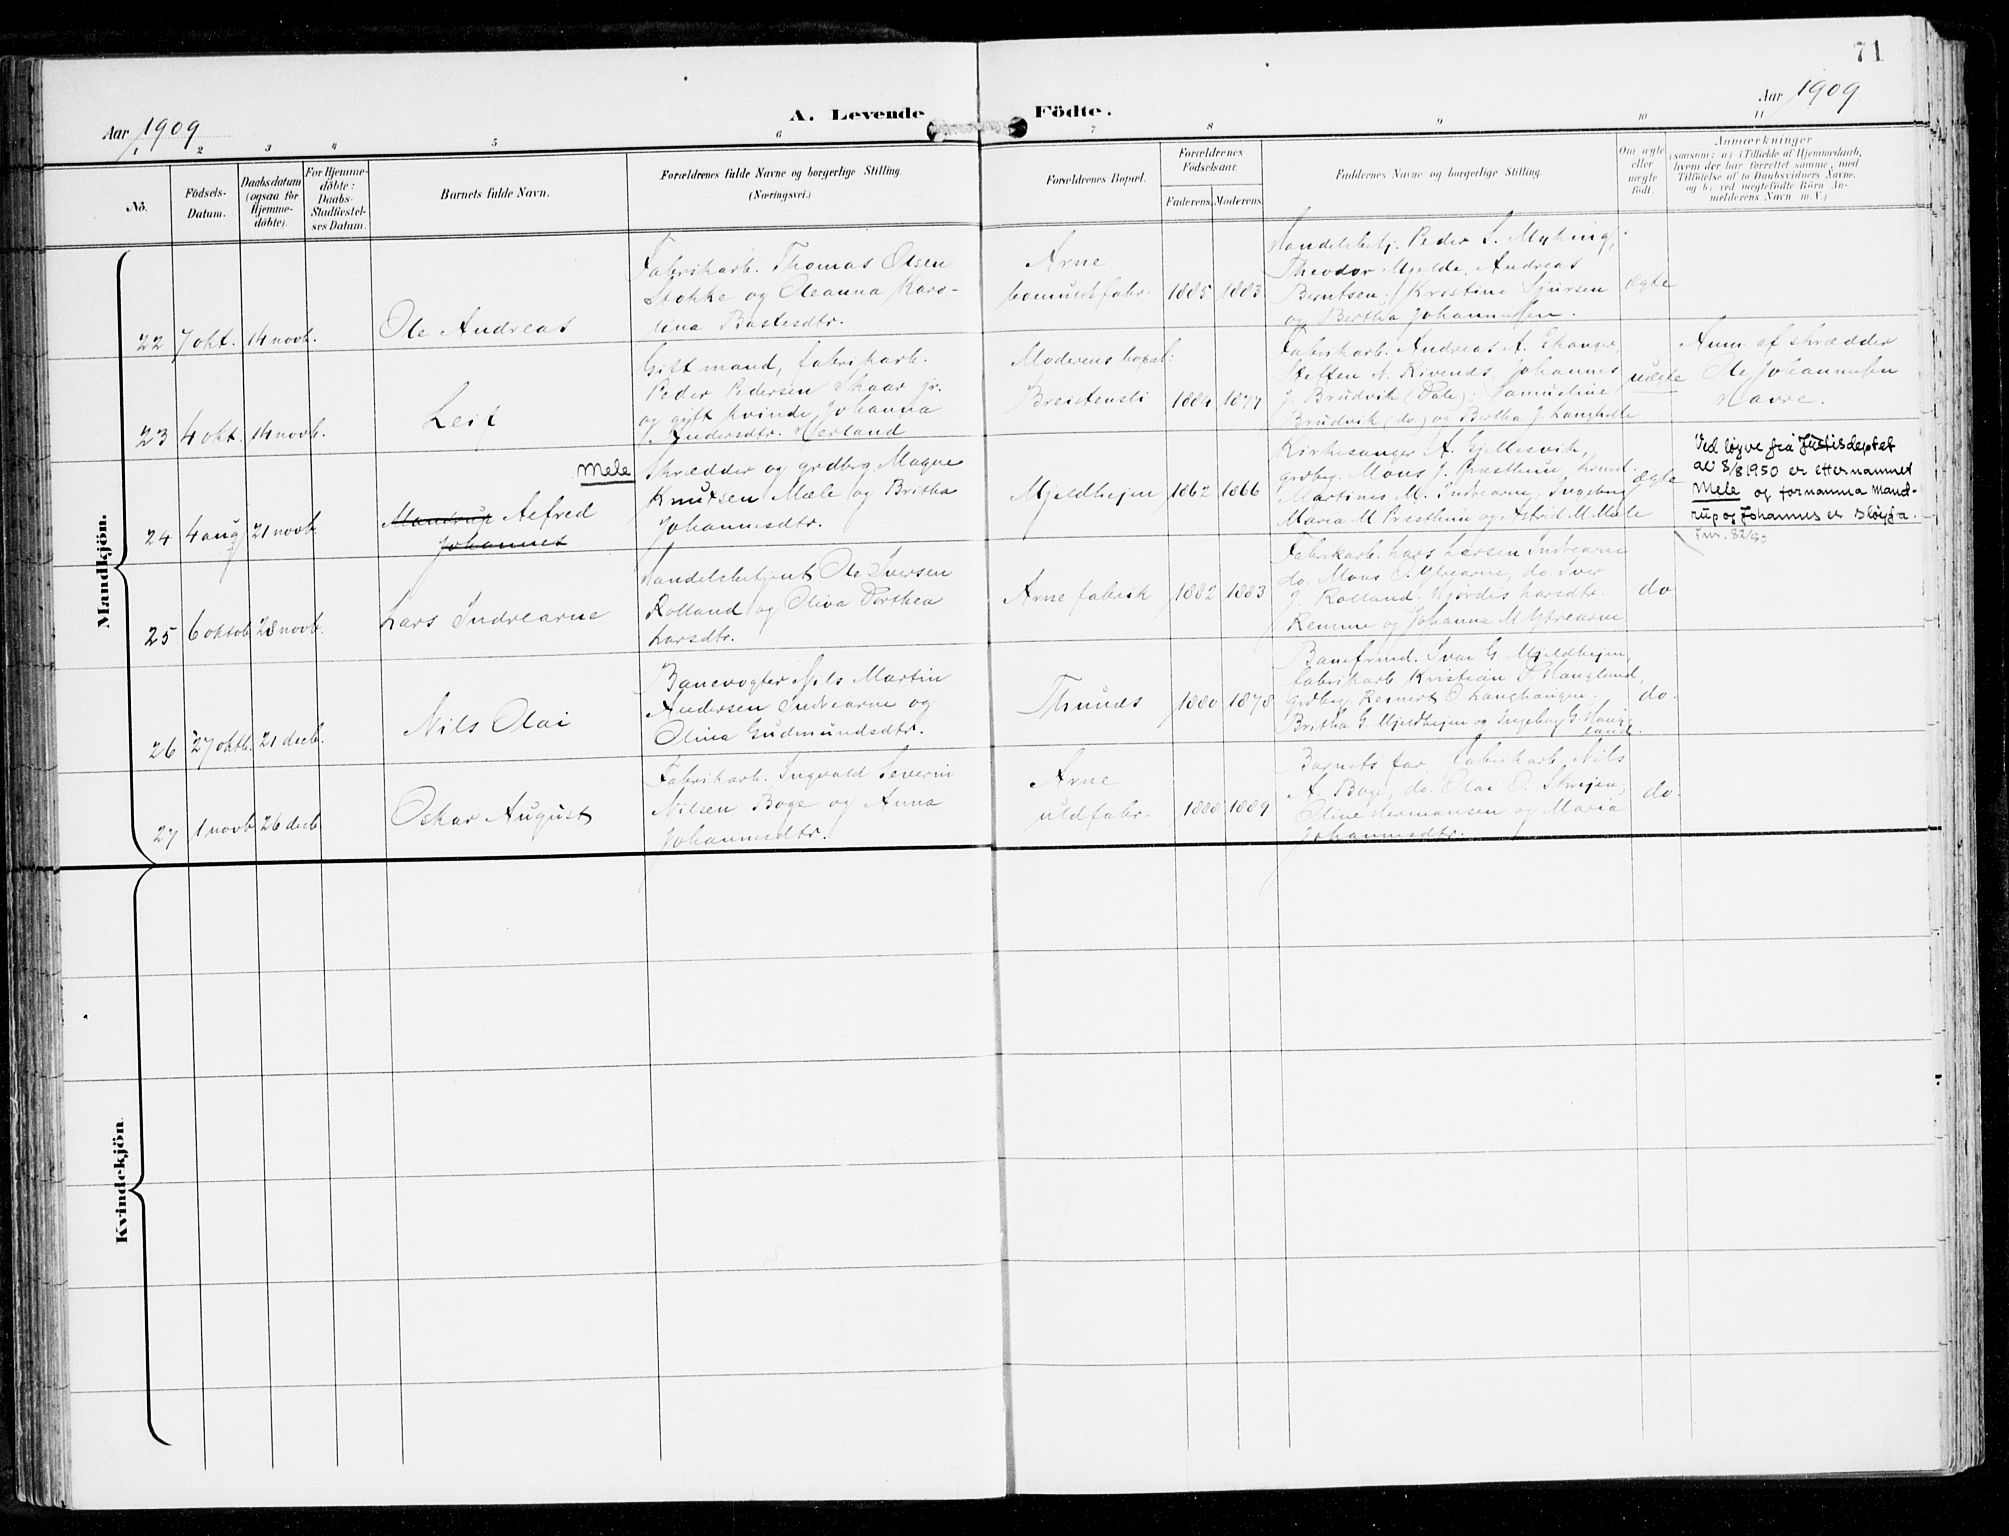 71
Aar 1909
A. Levende Födte.
Aar 1909
1 2 3 4 5 6 7 8 9 10 11
No.
Födsels-Datum.
Daabsdatum (ogsaa for Hjemme-döbte).
For Hjemme-döbte: Daabs-Stadfæstel-ses Datum.
Barnets fulde Navn.
Forældrenes fulde Navne og borgerlige Stilling.
(Næringsvei.)
Forældrenes Bopæl.
Forældrenes Födselsaar.
Faderens. Moderens.
Faddernes Navne og borgerlige Stilling.
Om ægte eller uægte födt.
Anmærkninger
(saasom: a) i Tilfælde af Hjemmedaab,
hvem der har forrettet samme, med
Tilföielse af to Daabsvidners Navne,
og b) ved uægtefödte Börn An-
melderens Navn m. V.)
Mandkjön.
22 7 okt. 14 novb.
Ole Andreas
Fabrikarb. Thomas Olsen
Stokke og Oleanna Karo-
lina Bastesdtr.
Arne
bomuldsfabr.
1885 1883
Handelsbetj. Peder S. Myking,
Theodor Mjelde, Andreas
Berntsen, Kristine Sjursen
og Bertha Johannessen.
ægte
23 4 okt. 14 novb.
Leif
Gift mand, fabrikarb.
Peder Pedersen Skaar jr.
og gift kvinde Johanna
Andersdtr. Herland
Moderens bopæl:
Breistensli
1884 1877
Fabrikarb. Andreas A. Ekanger,
Steffen N. Rivenes, Johannes
J. Brudvik (Dale), Samueline
Brudvik (do) og Bertha J. Langhelle
uægte
Anm. af skrædder
Ole Johannessen
Havre.
24 4 aug 21 novb.
Mandrup Alfred
Johannes
Mele
Skrædder og grdbrg Magne
Knutsen Mæle og Britha
Johannesdtr.
Mjeldhejen
1862 1866
Kirkesanger A. Gjellesvik,
grdbrg. Mons J. Præsthun,
Martines M. Indrearne, Ingeborg
Maria M. Præsthun og Astrid M. Mæle
ægte
Ved løyve frå Justisdeptet
av 8/8 1950 er etternamnet
Mele og fornamna Mand-
rup og Johannes er sløyfa.
Jnr. 82/50
25 6 oktob. 28 novb.
Lars Indrearne
Handelsbetjent Ole Iversen
Rolland og Oliva Dorthea
Larsdtr.
Arne fabrik
1882 1883
Fabrikarb. Lars Larsen Indrearne
do. Mons O. Ytrearne, do. Iver
J. Rolland. Hjørdis Larsdtr.
Remme og Johanna M. Ytrearne
do
26 27 oktb. 21 decb.
Nils Olai
Banevogter Nils Martin
Andersen Indrearne og
Olina Gudmundsdtr.
Thunæs
1880 1878
Baneformd. Ivar G. Mjeldhejen,
fabrikarb. Kristian P. Haugland,
grdbrg. Reinert O. Langhaugen.
Britha G. Mjeldhejen og Ingeborg G. Haug-
land.
do.
27 1 novb 26 decb
Oskar August
Fabrikarb. Ingvald Severin
Nilsen Boge og Anna
Johannesdtr.
Arne
uldfabr.
1888 1889
Barnets far, Fabrikarb. Nils
A. Boge, do. Olai O. Skrejen,
Oline Hermansen og Maria
Johannesdtr.
do.
Kvindekjön.